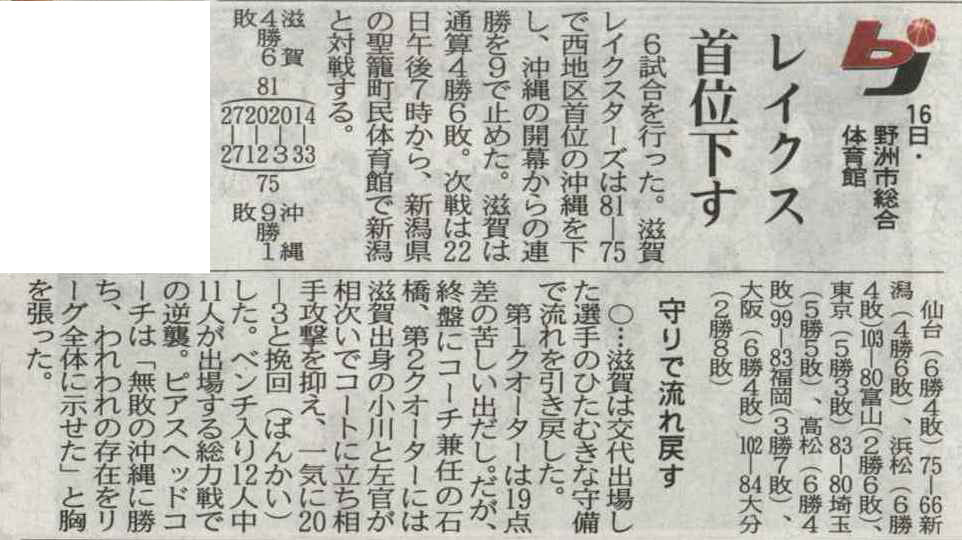 bj
16日・
野洲市総合
体育館
レイクス
首位下す
６試合を行った。滋賀
レイクスターズは81―75
で西地区首位の沖縄を下
し、沖縄の開幕からの連
勝を９で止めた。滋賀は
通算４勝６敗。次戦は22
日午後７時から、新潟県
の聖籠町民体育館で新潟
と対戦する。
滋賀
４勝６
敗
81
27 20 20 14
｜｜｜｜
27 12 3 33
75
沖縄
９勝１
敗
仙台（６勝４敗）75―66新
潟（４勝６敗）、浜松（６勝
４敗）103―80富山（２勝６敗）、
東京（５勝３敗）83―80埼玉
（５勝５敗）、高松（６勝４
敗）99―83福岡（３勝７敗）、
大阪（６勝４敗）102―84大分
（２勝８敗）
守りで流れ戻す
○…滋賀は交代出場し
た選手のひたむきな守備
で流れを引き戻した。
第１クオーターは19点
差の苦しい出だし。だが、
終盤にコーチ兼任の石
橋、第２クオーターには
滋賀出身の小川と左官が
相次いでコートに立ち相
手攻撃を抑え、一気に20
―３と挽回（ばんかい）
した。ベンチ入り12人中
11人が出場する総力戦で
の逆襲。ピアスヘッドコ
ーチは「無敗の沖縄に勝
ち、われわれの存在をリ
ーグ全体に示せた」と胸
を張った。